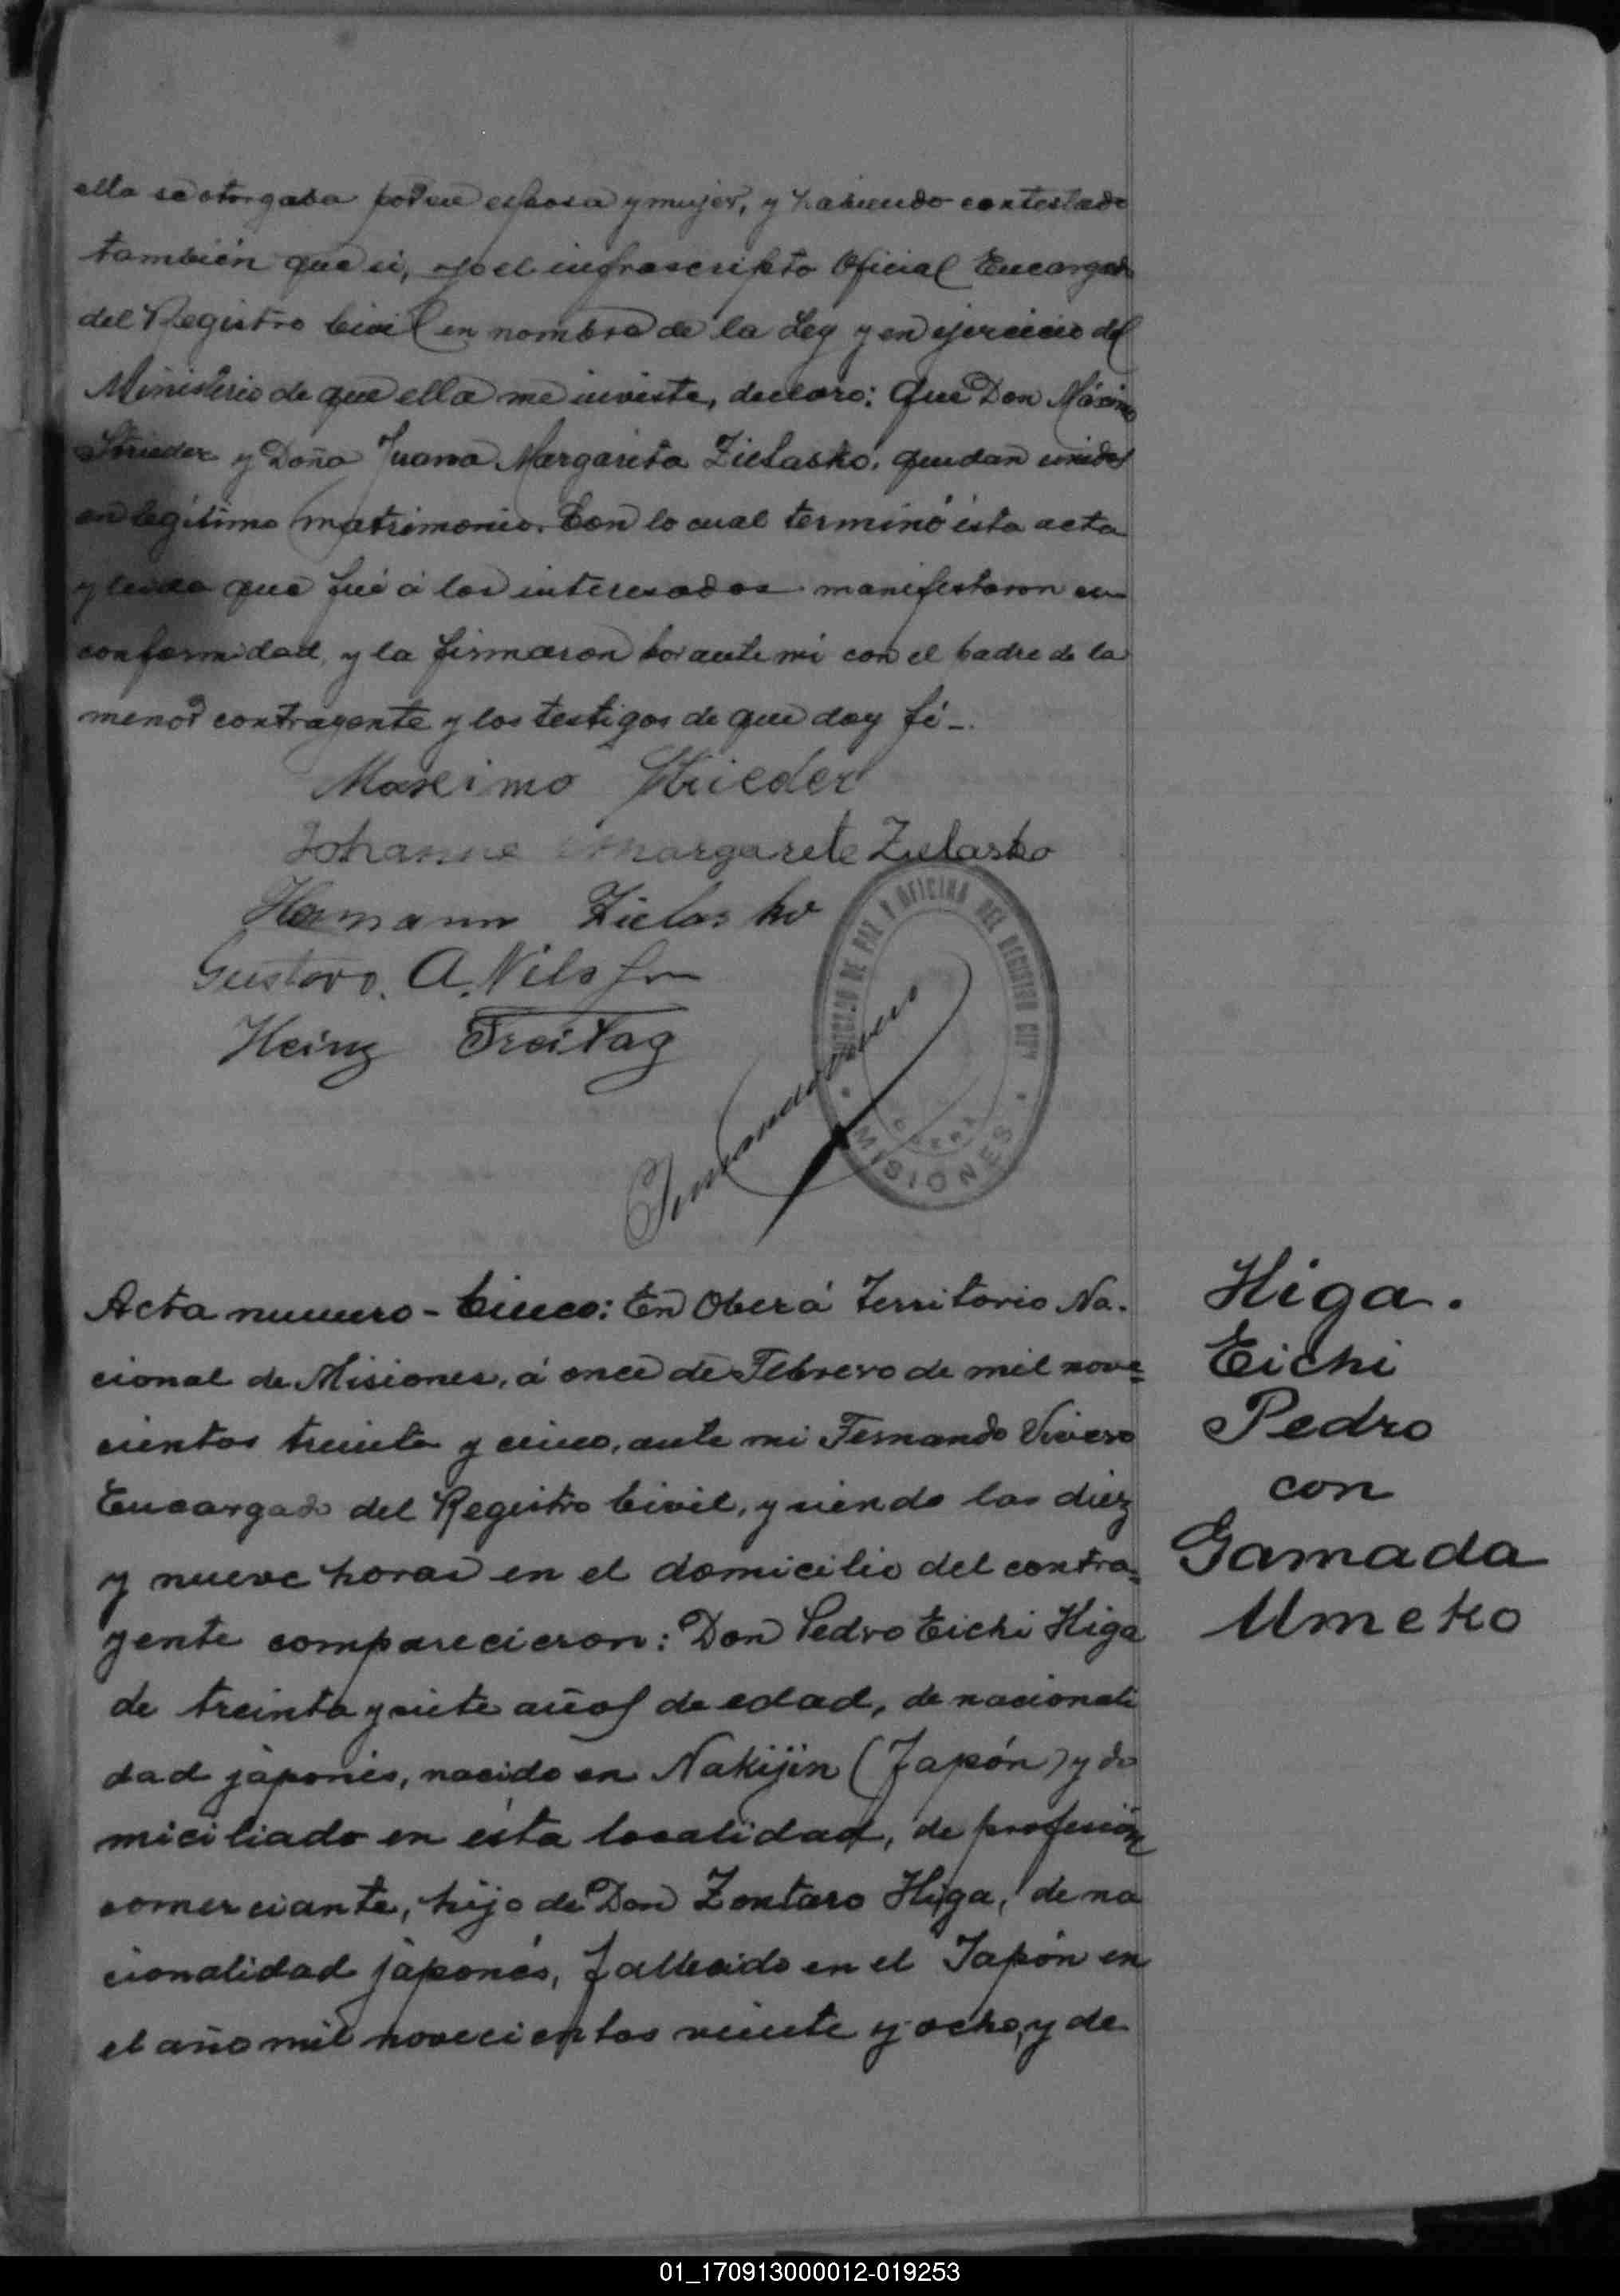 ella se otorgaba por su esposa y mujer, y habiendo contestado
también que si, yo el infrascripto Oficial Encargado
del Registro Civil en nombre de la Ley y en ejercicio del
Ministerio de que ella me inviste, declaro: Que Don Máximo
Strieder y Doña Juana Margarita Zielasko, quedan unidos
en legítimo matrimonio. Con lo cual terminó ésta acta
y leida que fué á los interesados manifestaron su
conformidad, y la firmaron por ante mi con el padre de la
menor contrayente y los testigos de que doy fé-.
Maximo Strieder
Johanne Margarete Zielasko
Hermann Zielasko
Gustavo. A. Nilsson
Heinz Freitag
JUZGADO DE PAZ Y OFICINA DEL REGISTRO CIVIL
OBERA
MISIONES
Fernando Vivero
Acta numero - Cinco: En Oberá Territorio Na-
cional de Misiones, á once de Febrero de mil nove=
cientos treinta y cinco, ante mi Fernando Vivero
Encargado del Registro Civil, y siendo las diez
y nueve horas en el domicilio del contra=
yente comparecieron: Don Pedro Eichi Higa
de treinta y siete años de edad, de nacionali
dad japonés, nacido en Nakijin (Japón) y do
miciliado en ésta localidad, de profesión
comerciante, hijo de Don Zontaro Higa, de na
cionalidad japonés, fallecido en el Japón en
el año mil novecientos veinte y ocho, y de
Higa.
Eichi
Pedro
con
Gamada
Umeko
01_170913000012-019253